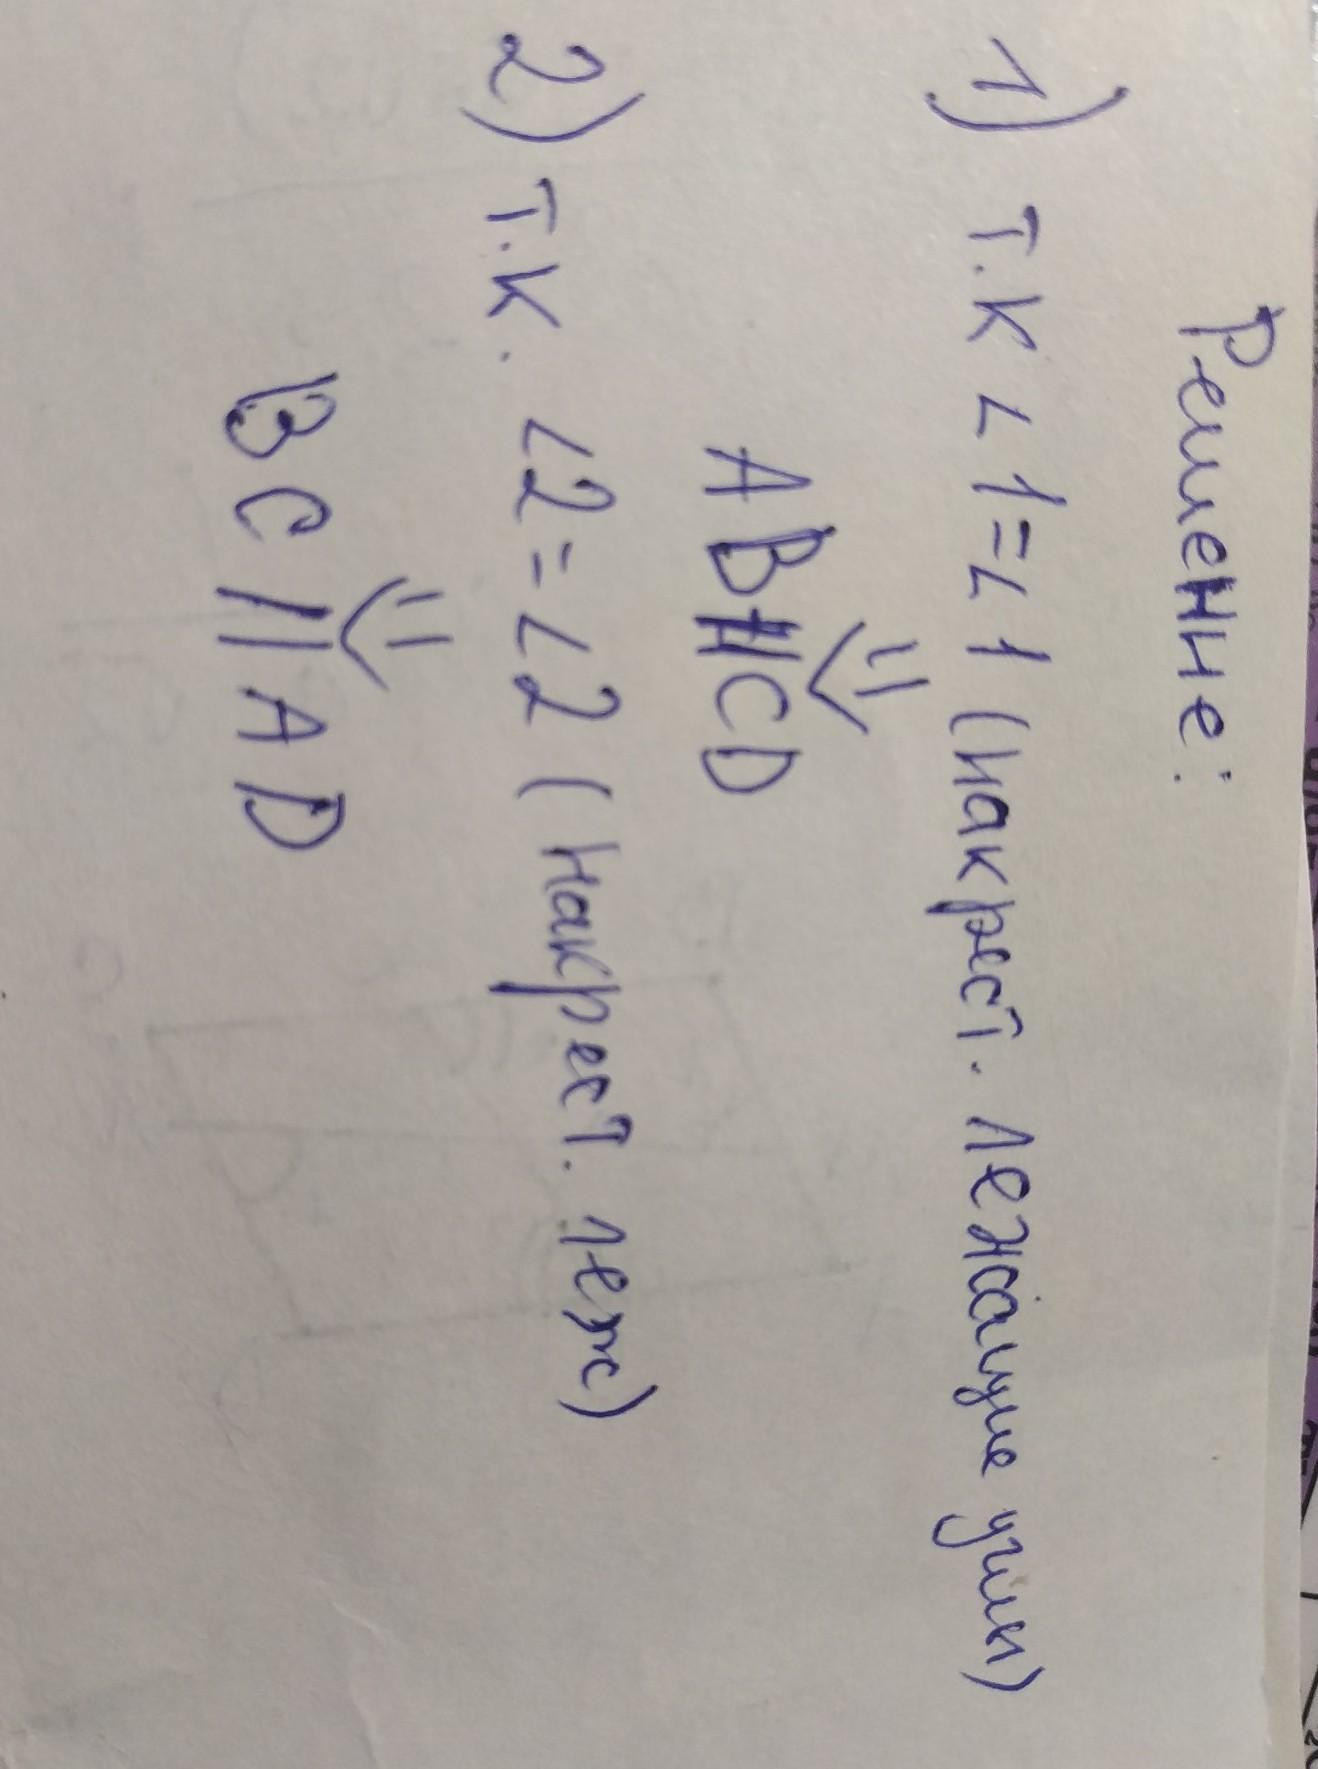 Решение:
1) т.к ∠1=∠1 (накрест. лежащие углы)
⇓
AB||CD
2) т.к. ∠2=∠2 (накрест. леж)
⇓
BC||AD